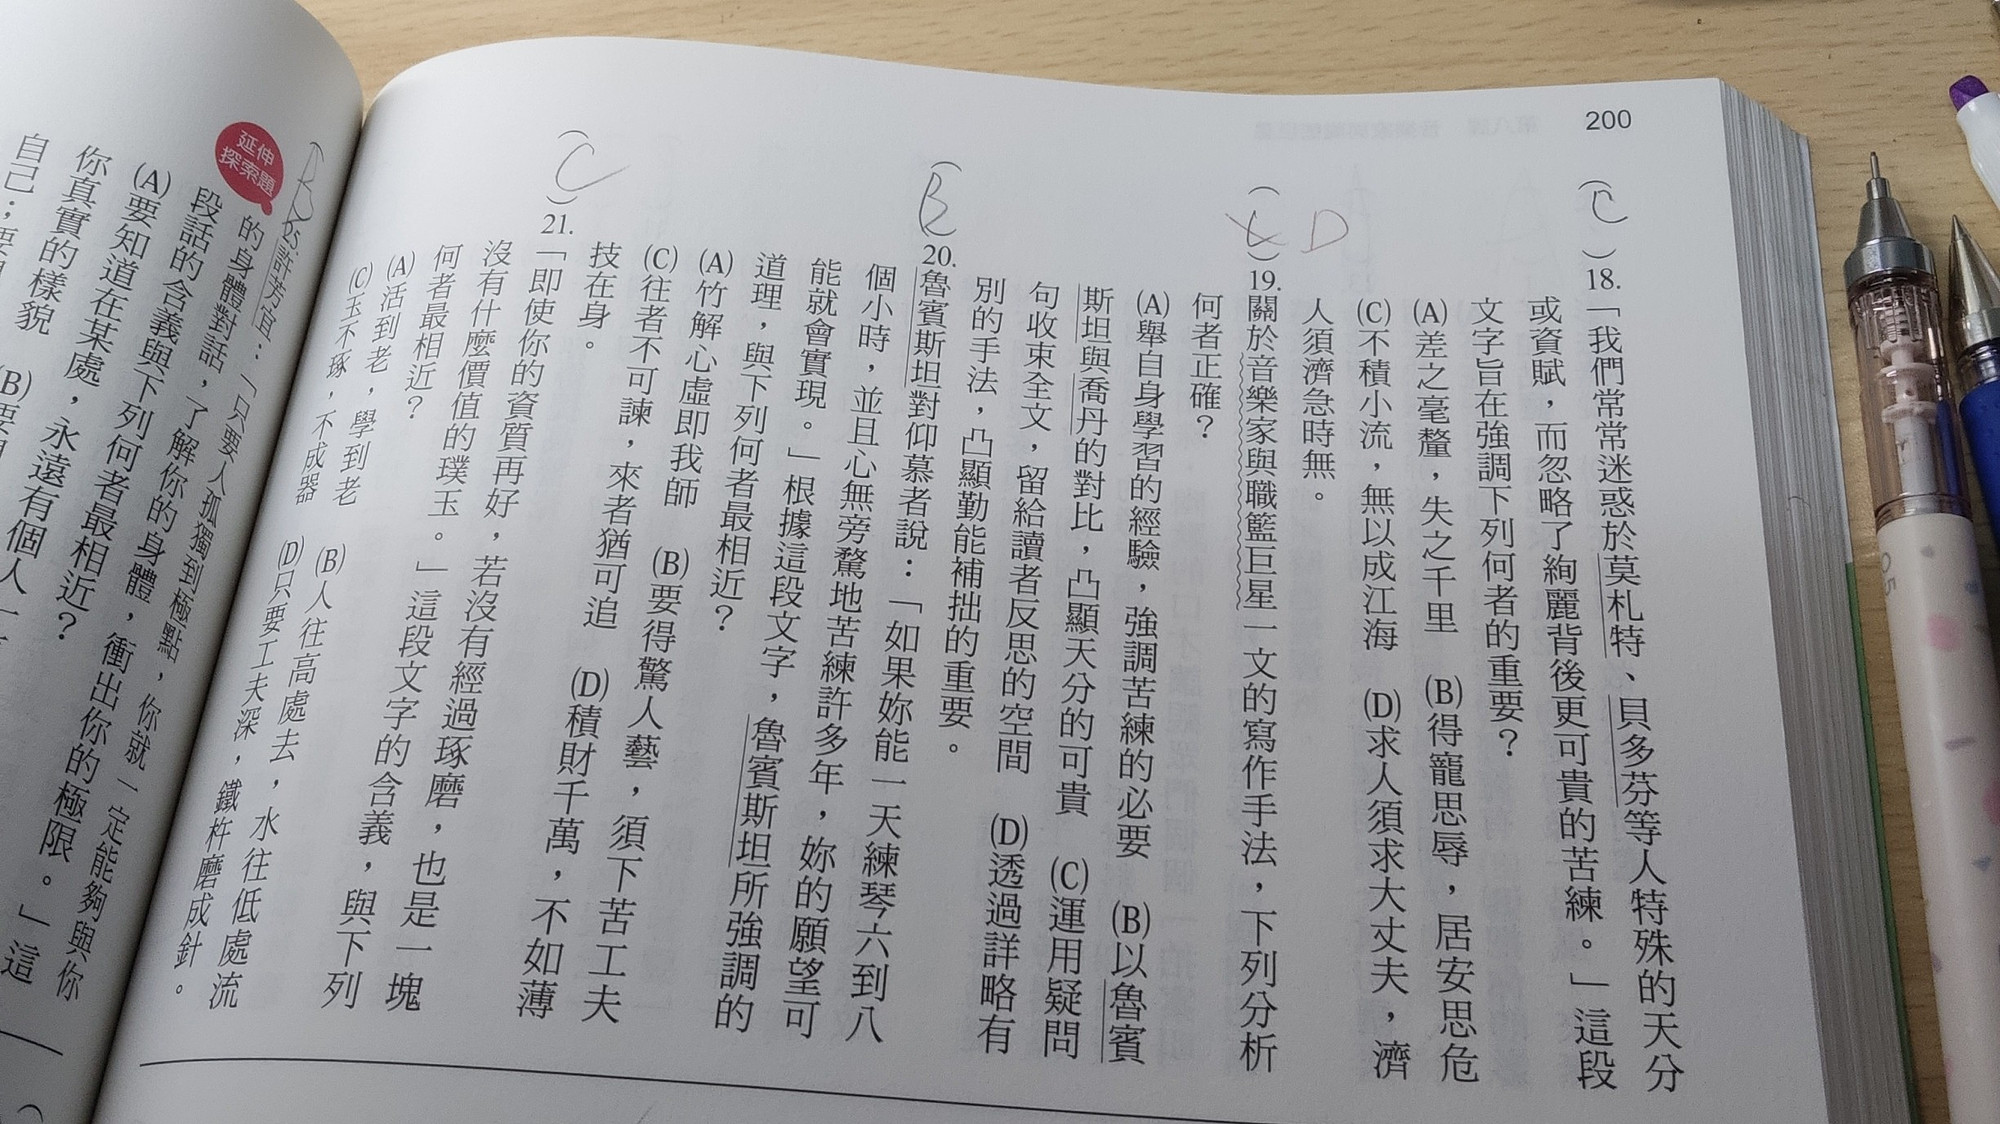 200
(C)18.「我們常常迷惑於莫札特、貝多芬等人特殊的天分
或資賦，而忽略了絢麗背後更可貴的苦練。」這段
文字旨在強調下列何者的重要？
(A)差之毫釐，失之千里 (B)得寵思辱，居安思危
(C)不積小流，無以成江海 (D)求人須求大丈夫，濟
人須濟急時無。
( D)19.關於音樂家與職籃巨星一文的寫作手法，下列分析
何者正確？
(A)舉自身學習的經驗，強調苦練的必要 (B)以魯賓
斯坦與喬丹的對比，凸顯天分的可貴 (C)運用疑問
句收束全文，留給讀者反思的空間 (D)透過詳略有
別的手法，凸顯勤能補拙的重要。
(B)20.魯賓斯坦對仰慕者說：「如果妳能一天練琴六到八
個小時，並且心無旁騖地苦練許多年，妳的願望可
能就會實現。」根據這段文字，魯賓斯坦所強調的
道理，與下列何者最相近？
(A)竹解心虛即我師 (B)要得驚人藝，須下苦工夫
(C)往者不可諫，來者猶可追 (D)積財千萬，不如薄
技在身。
(C)21.「即使你的資質再好，若沒有經過琢磨，也是一塊
沒有什麼價值的璞玉。」這段文字的含義，與下列
何者最相近？
(A)活到老，學到老 (B)人往高處去，水往低處流
(C)玉不琢，不成器 (D)只要工夫深，鐵杵磨成針。
延伸
探索題
25.許芳宜：「只要人孤獨到極點，你就一定能夠與你
的身體對話，了解你的身體，衝出你的極限。」這
段話的含義與下列何者最相近？
(A)要知道在某處，永遠有個人
你真實的樣貌 (B)要
自己；